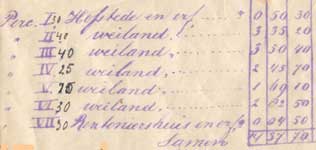 Perc. I 30 Hofstede en erf, " 0 50 30
" II 40 weiland, " 3 35 20
" III 40 weiland, " 3 30 40
" IV 25 weiland, " 2 43 70
" V 75 weiland, " 1 49 10
" VI 30 weiland, " 2 62 50
" VII 30 Renteniershuis en erf, " 0 04 50
Samen 37 70